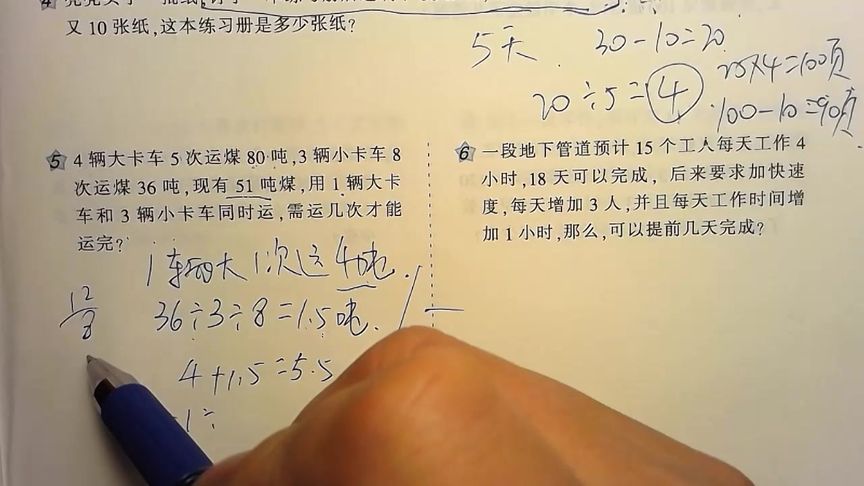 又 10 张纸,这本练习册是多少张纸?
5天 30-10=20
20÷5=4
25×4=100页
100-10=90页
5 4 辆大卡车 5 次运煤 80 吨,3 辆小卡车 8
次运煤 36 吨,现有 51 吨煤,用 1 辆大卡
车和 3 辆小卡车同时运,需运几次才能
运完?
1辆大1次运4吨.
12
8
36÷3÷8=1.5吨.
4+1.5=5.5
1÷
6 一段地下管道预计 15 个工人每天工作 4
小时,18 天可以完成, 后来要求加快速
度,每天增加 3 人,并且每天工作时间增
加 1 小时,那么,可以提前几天完成?